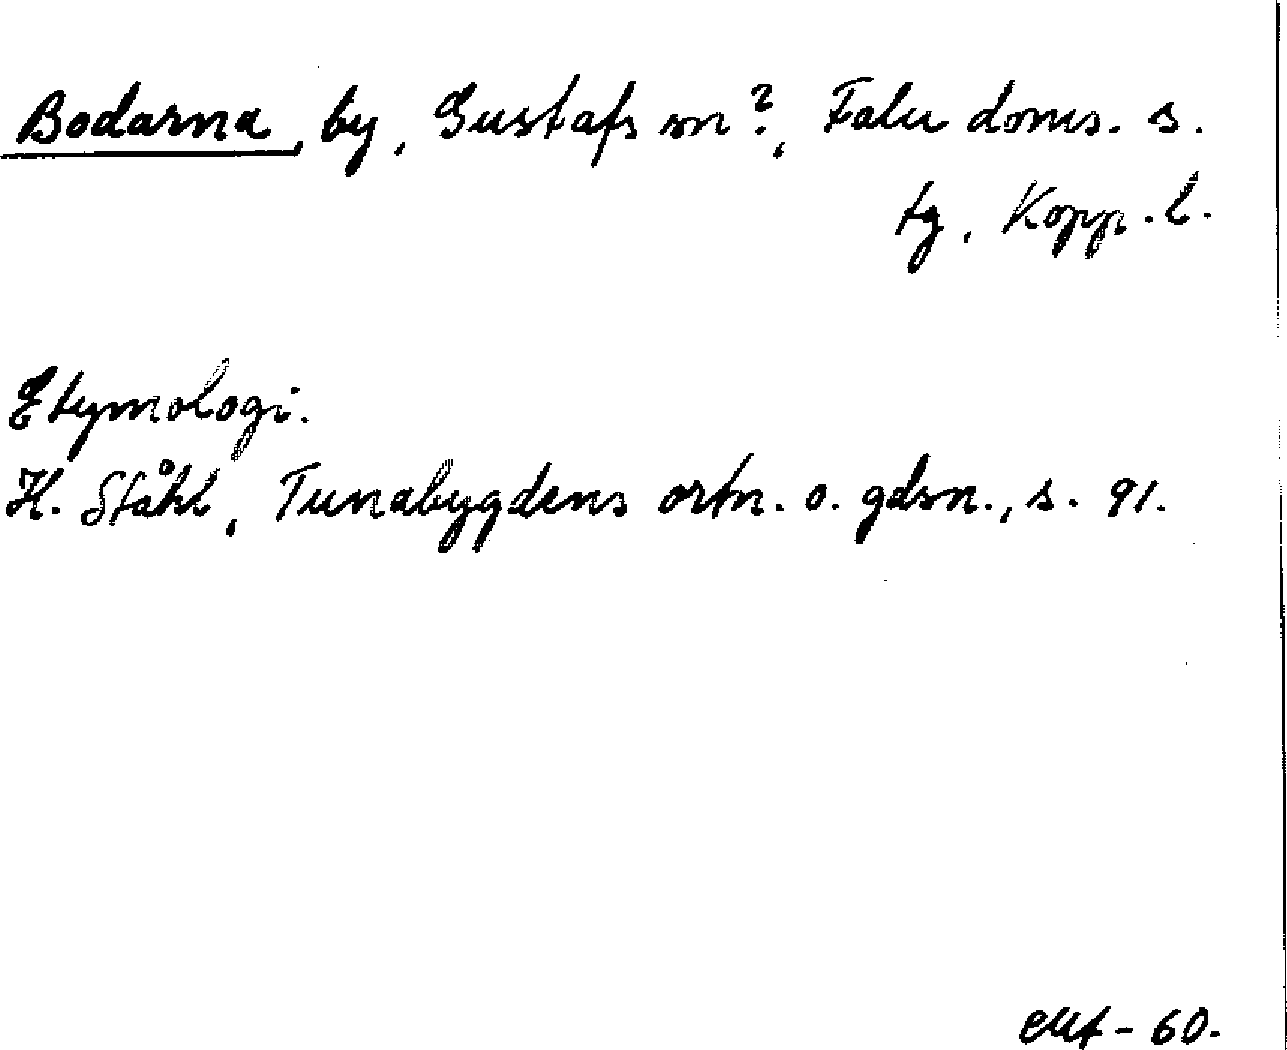 Bodarna, by, Gustafs sn?, Falu doms. s.
tg, Kopp. l.
Etymologi.
H. Ståhl, Tunabygdens ortn. o. gdsn., s. 91.
- 60.